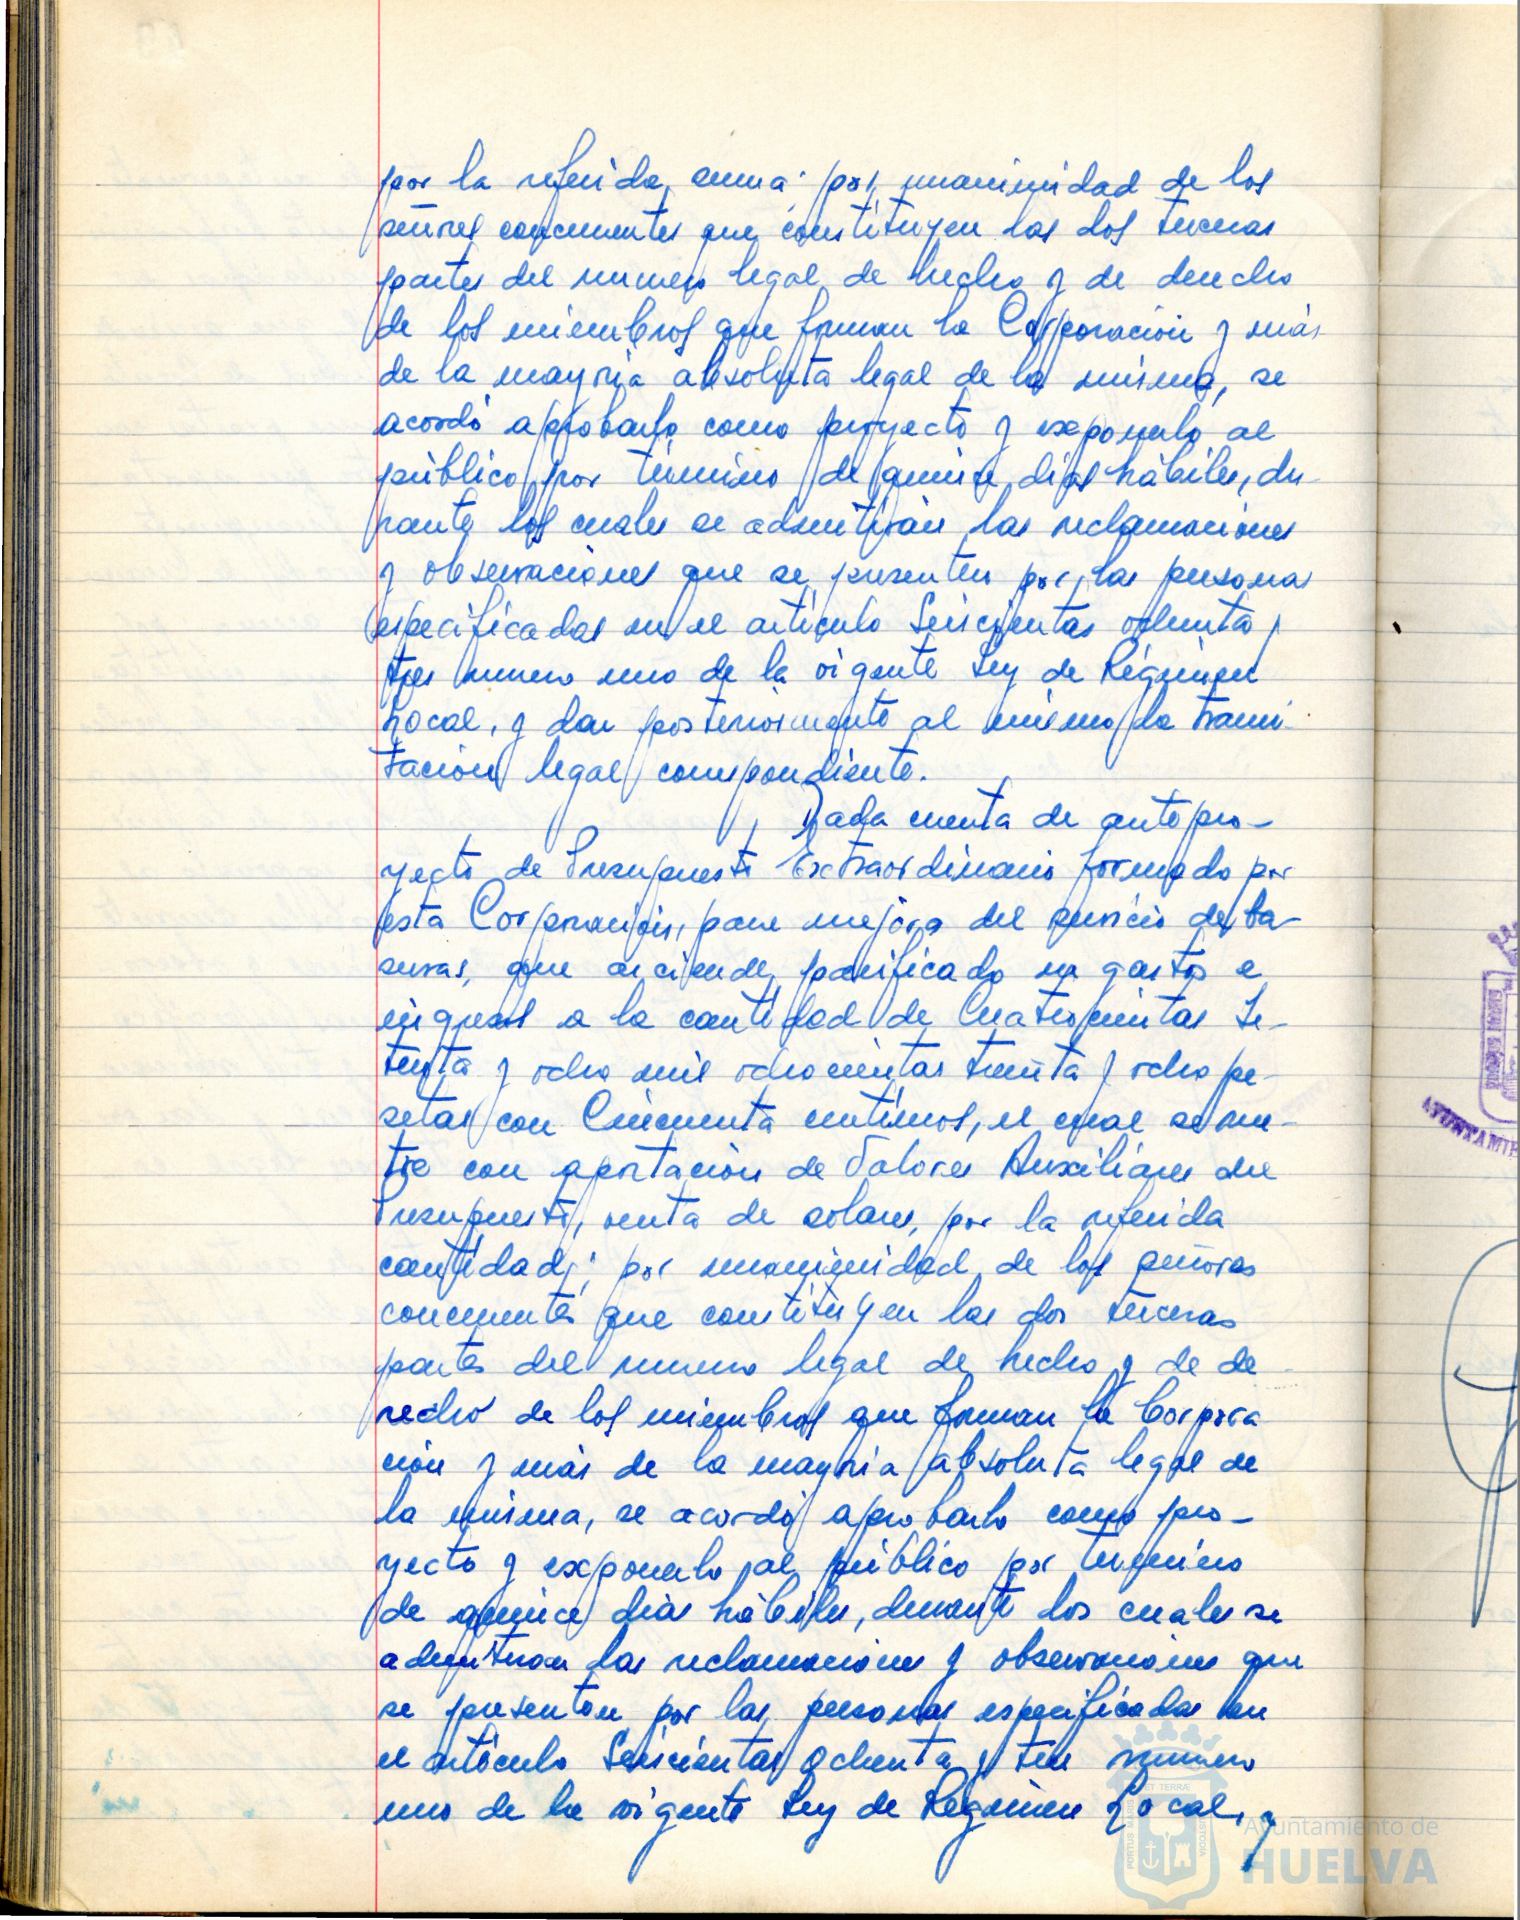 por la referida suma; por unanimidad de los
señores concurrentes que constituyen las dos terceras
partes del numero legal de hecho y de derecho
de los miembros que forman la Corporación y más
de la mayoria absoluta legal de la misma, se
acordó aprobarlo como proyecto y exponerlo al
público por término de quince dias hábiles, du-
rante los cuales se admitirán las reclamaciones
y observaciones que se presenten por las personas
especificadas en el artículo Seiscientos ochenta y
tres numero uno de la vigente Ley de Régimen
Local, y dar posteriormente al mismo la trami-
tación legal correspondiente.
Dada cuenta de antepro-
yecto de Presupuesto Extraordinario formado por
esta Corporación, para mejora del servicio de ba-
suras, que asciende, panificado en gastos e
ingresos a la cantidad de Cuatrocientas Se-
tenta y ocho mil ochocientas treinta y ocho pe-
setas con Cincuenta centimos, el cual se nu-
tre con aportación de Valores Auxiliares del
Presupuesto, venta de solares, por la referida
cantidad; por unanimidad de los señores
concurrentes que constituyen las dos terceras
partes del numero legal de hecho y de de-
recho de los miembros que forman la Corpora
ción y más de la mayoria absoluta legal de
la misma, se acordó aprobarlo como pro-
yecto y exponerlo al público por termino
de quince dias hábiles, durante los cuales se
admitiran las reclamaciones y observaciones que
se presenten por las personas especificadas en
el artículo Seiscientos Ochenta y tres numero
uno de la vigente Ley de Régimen Local, y
AYUNTAMIE
Ayuntamiento de
HUELVA